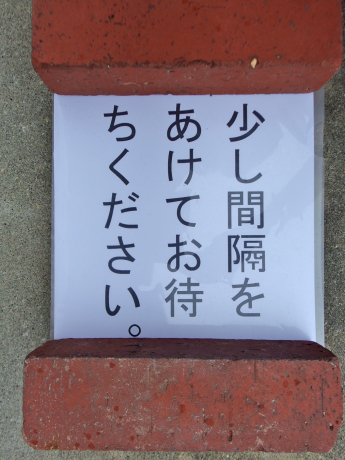 少し間隔を
あけてお待
ちください。